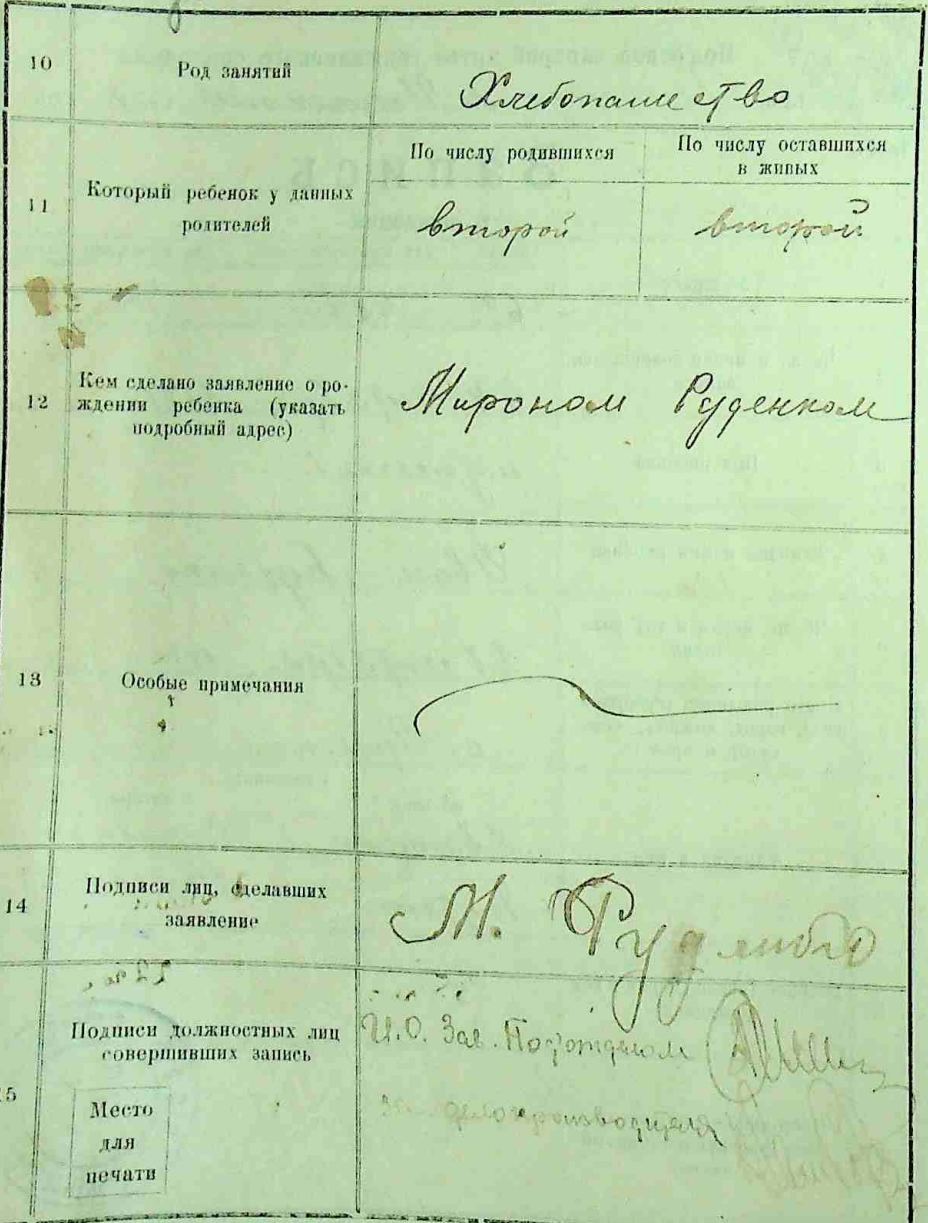 10
Род занятий
Хлебопашество
11
Который ребенок у данных
родителей
По числу родившихся
По числу оставшихся
в живых
второй
второй
12
Кем сделано заявление о ро-
ждении ребенка (указать
подробный адрес)
Мироном Руденком
13
Особые примечания
14
Подписи лиц, сделавших
заявление
М. Руденко
15
Подписи должностных лиц
совершивших запись
Место
для
печати
И.О. Зав.
делопроизводителя